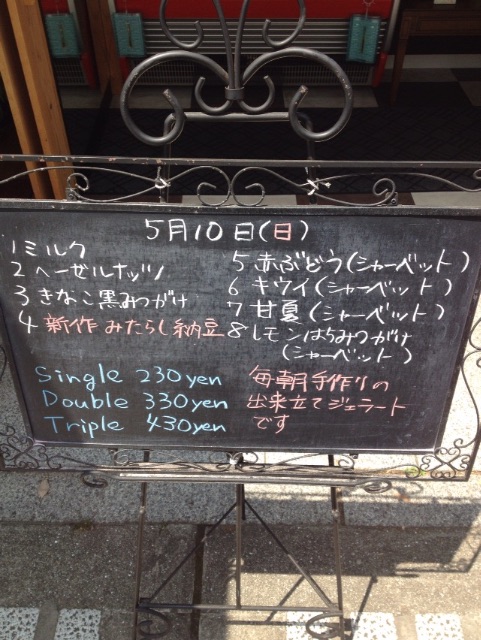 5月10日(日)
1 ミルク
2 ヘーゼルナッツ
3 きなこ黒みつがけ
4 新作 みたらし納豆
5 赤ぶどう(シャーベット)
6 キウイ(シャーベット)
7 甘夏(シャーベット)
8 レモンはちみつがけ
(シャーベット)
Single 230yen
Double 330yen
Triple 430yen
毎朝手作りの
出来立てジェラート
です